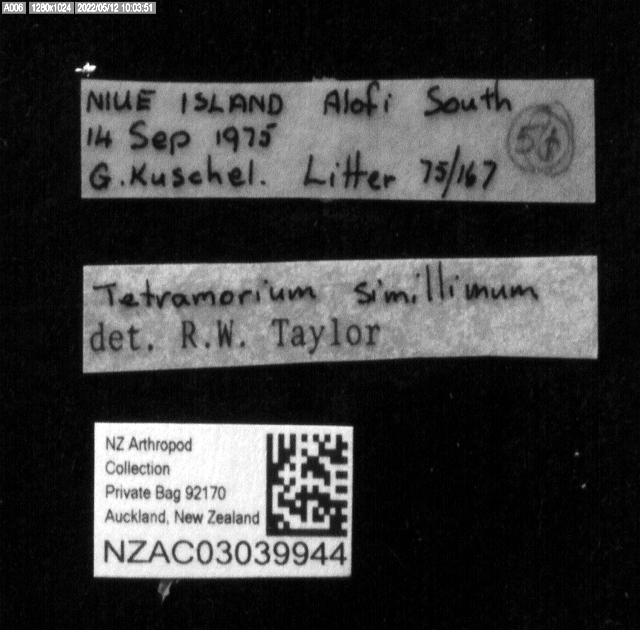 A006 1280x1024 2022/05/12 10:03:51
NIUE ISLAND Alofi South
14 Sep 1975
G. Kuschel. Litter 75/167
Tetramorium simillimum
det. R.W. Taylor
NZ Arthropod
Collection
Private Bag 92170
Auckland, New Zealand
NZAC03039944